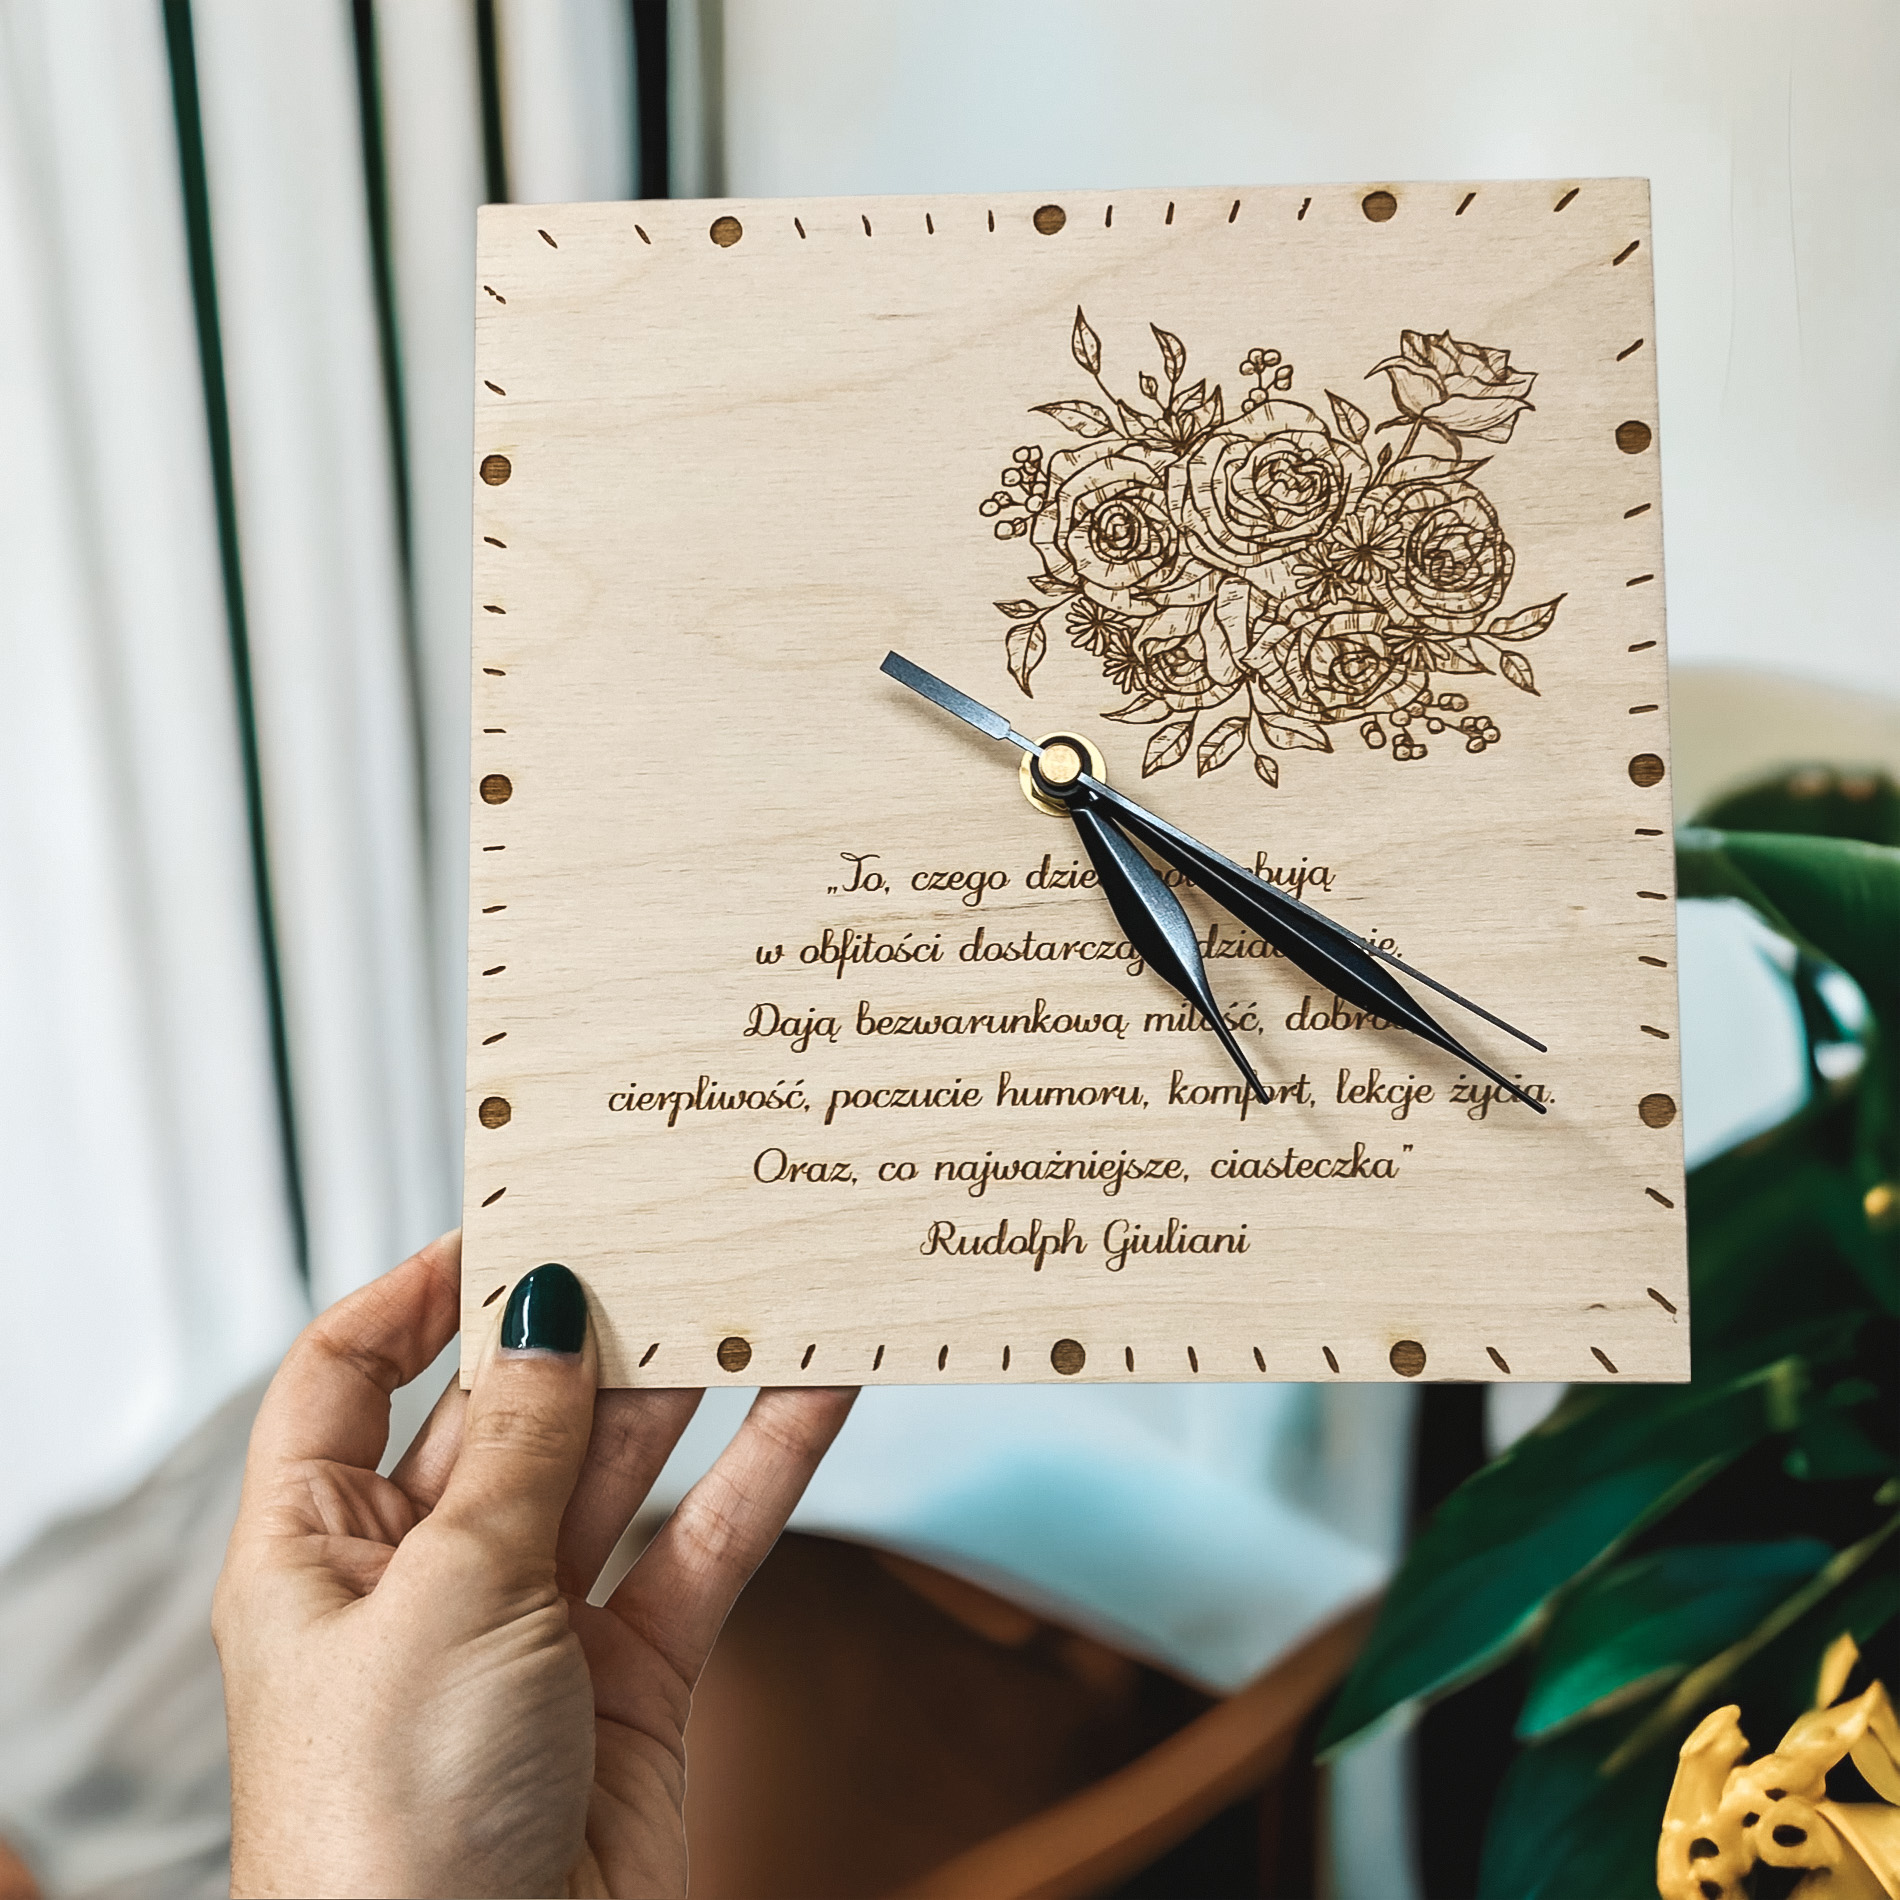 „To, czego dzieci potrzebują
w obfitości dostarczają dziadkowie.
Dają bezwarunkową miłość, dobroć,
cierpliwość, poczucie humoru, komfort, lekcje życia.
Oraz, co najważniejsze, ciasteczka”
Rudolph Giuliani